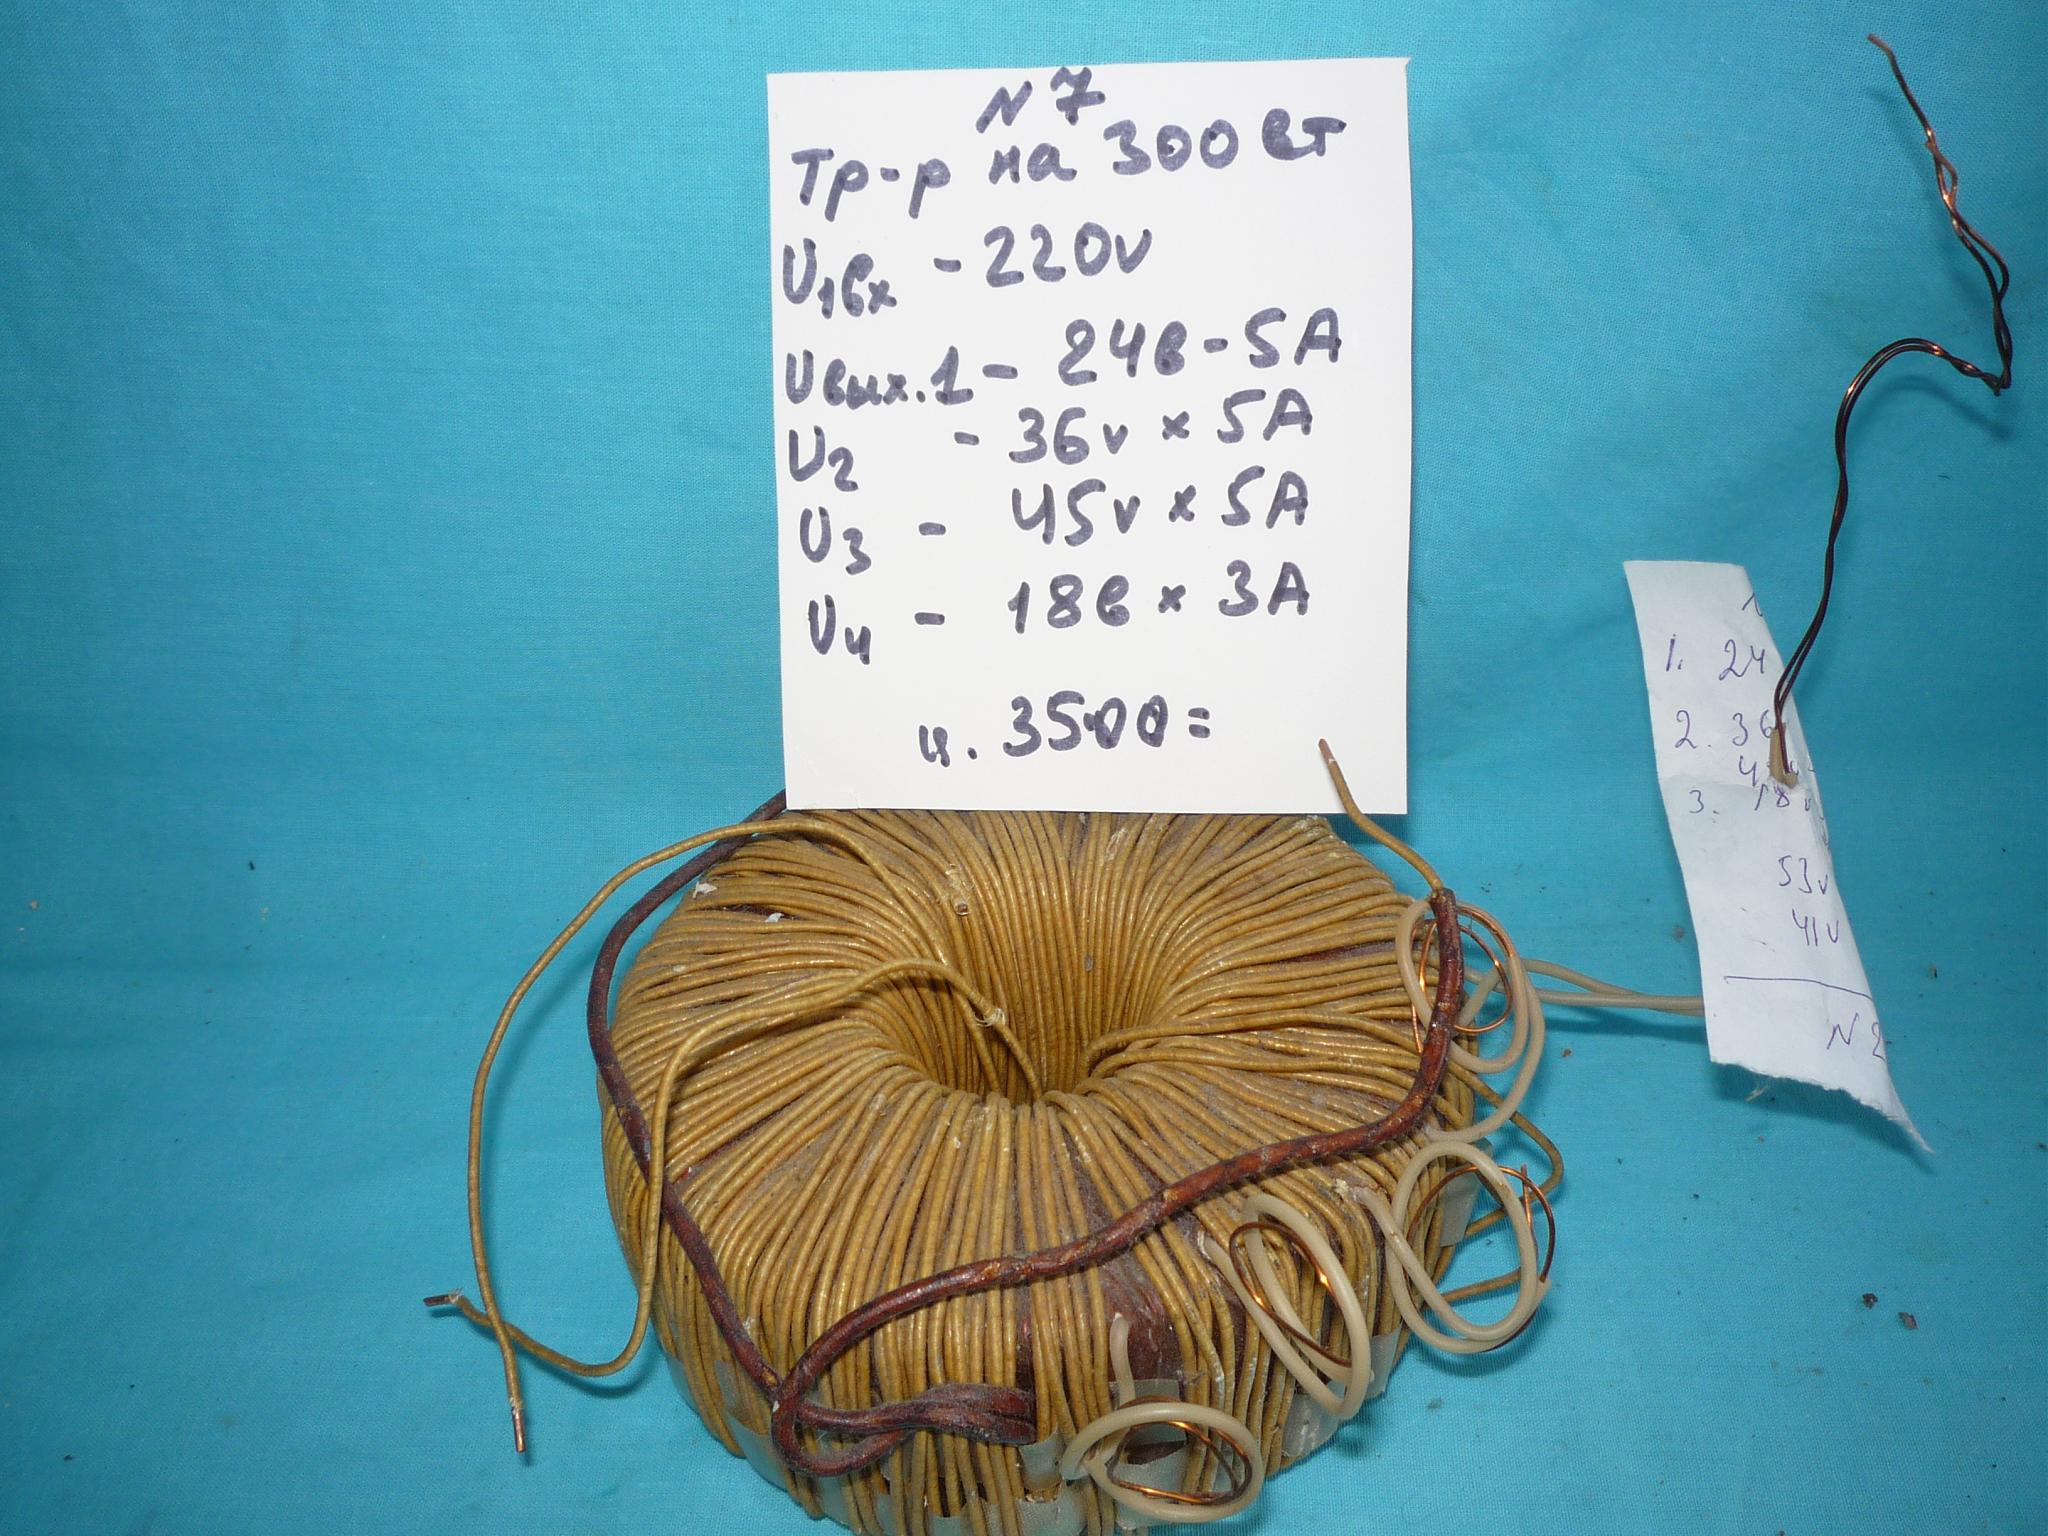 N 7
Тр-р на 300 Вт
U1вх - 220v
Uвых.1 - 24в - 5А
U2 - 36v x 5A
U3 - 45v x 5A
U4 - 18в x 3А
ц. 3500=
1. 24
2. 36
3. 18
53v
41v
N 2